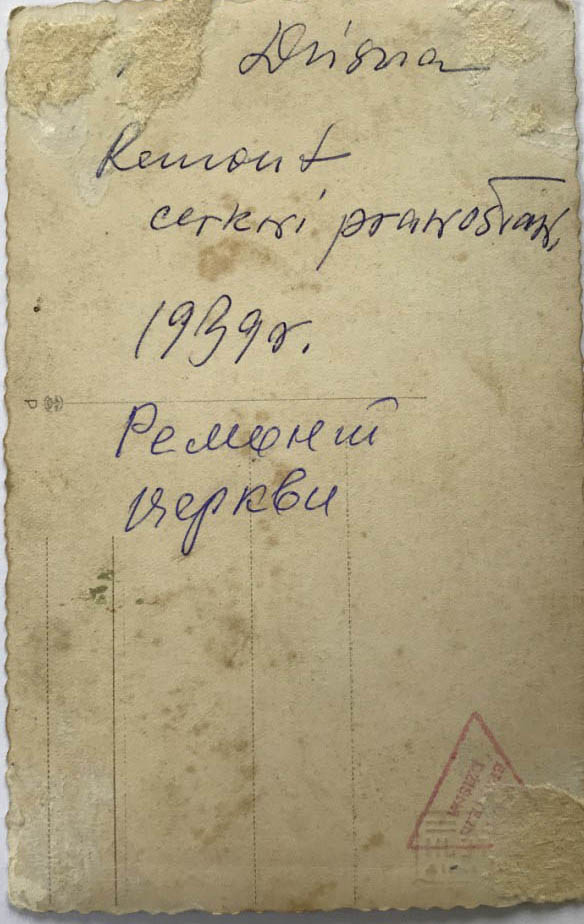 Dzisna
Remont
cerkwi prawosław.
1939r.
Ремонт
церкви